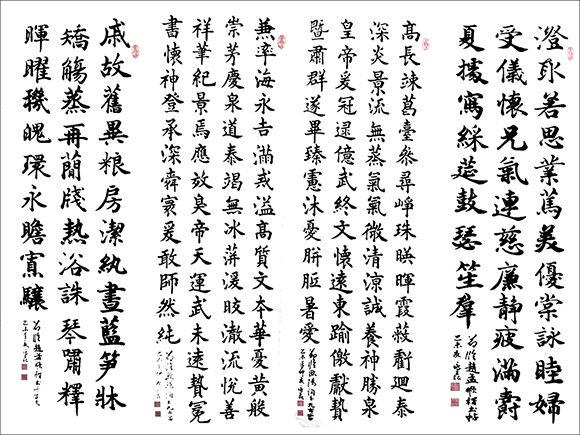 澄取若思業篤美優棠詠睦婦
受儀懷兄氣連慈廉靜疲滿爵
夏據寫綵筵鼓瑟笙羣
高長竦葛臺叅尋崢珠暎暉霞蔽虧迴泰
深炎景流無蒸氣氣微清涼誠養神勝泉
皇帝爰冠逮億武終文懷遠東踰儌獻贄
暨肅群遂畢臻憲沐憂胼胝暑愛
兼率海永吉滿戒溢高質文本華憂黃般
崇茅慶泉道泰竭無冰萍湲晈澈流悅善
祥華紀景焉應故臭帝天運武未逮贊冕
書懷神登承深舜寰爰敢師然純
戚故舊異粮房潔紈晝藍笋牀
矯觴蒸再蕑牋熱浴誅琴嘯釋
暉曜璣魄環永瞻賓驤